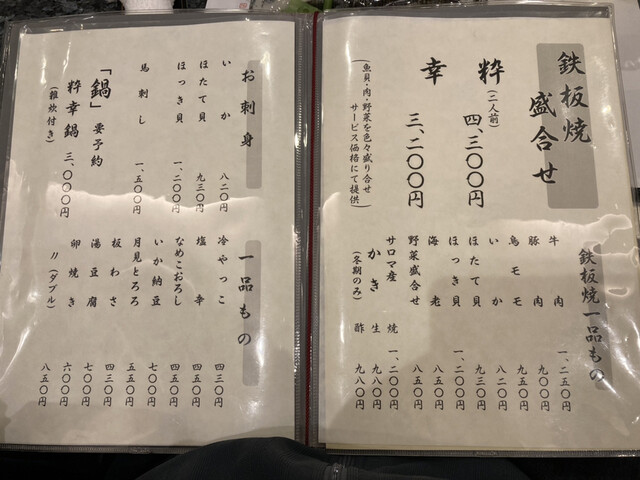 鉄板焼
盛合せ
粋(二人前) 四、三〇〇円
幸 三、二〇〇円
(魚貝・肉・野菜を色々盛り合せ
サービス価格にて提供)
鉄板焼一品もの
牛肉 一、二五〇円
豚肉 九〇〇円
鳥モモ 九〇〇円
いか 八二〇円
ほたて貝 九三〇円
ほっき貝 一、二〇〇円
海老 八五〇円
野菜盛合せ 八五〇円
サロマ産 焼 一、二〇〇円
かき 生 九八〇円
(冬期のみ) 酢 九八〇円
お刺身
いか 八二〇円
ほたて貝 九三〇円
ほっき貝 一、二〇〇円
馬刺し 一、五〇〇円
「鍋」要予約
粋幸鍋 三、〇〇〇円
(雑炊付き)
一品もの
冷やっこ 四三〇円
塩辛 四五〇円
なめこおろし 四五〇円
いか納豆 七〇〇円
月見とろろ 五五〇円
板わさ 四三〇円
湯豆腐 七〇〇円
卵焼き 六〇〇円
〃(ダブル) 八五〇円